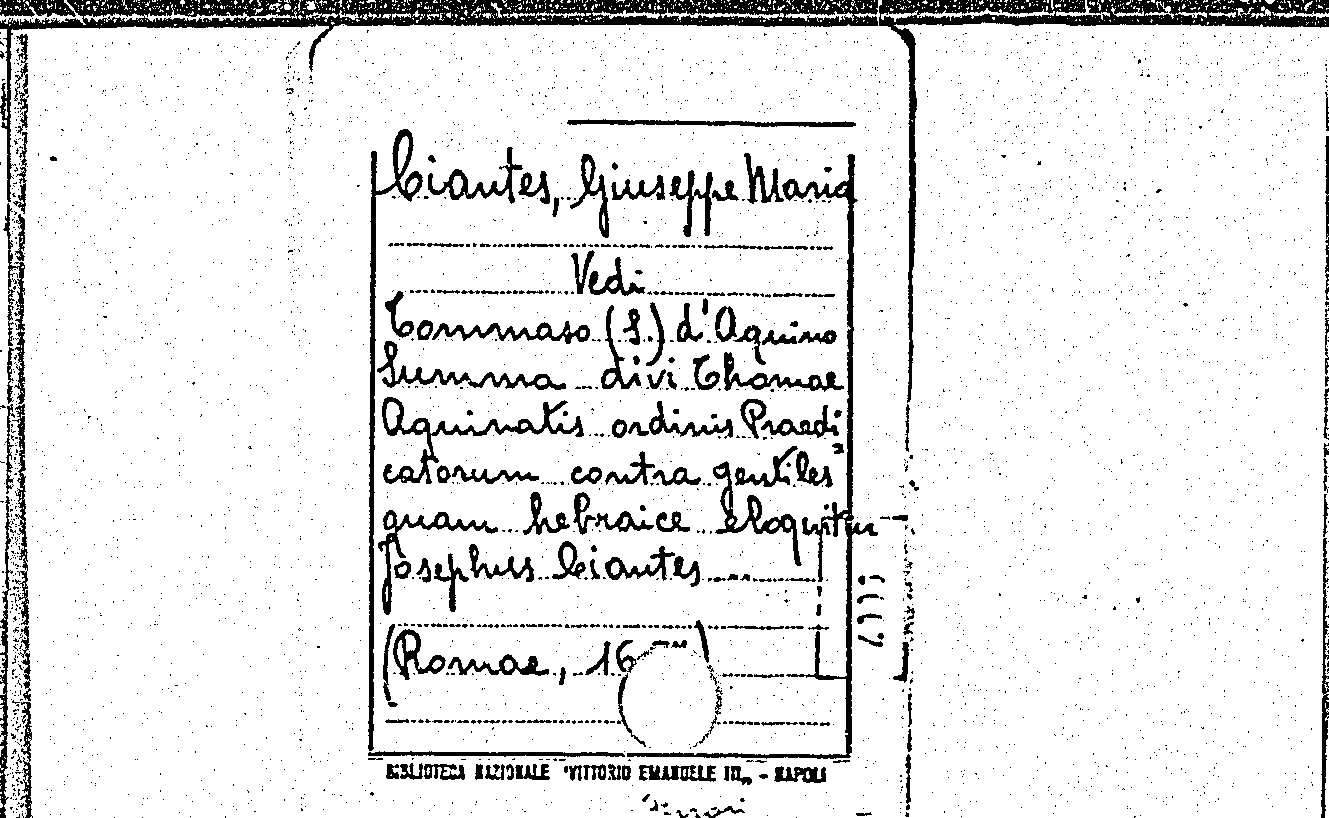 Ciantes, Giuseppe Maria
Vedi
Tommaso (S.) d'Aquino
Summa divi Thomae
Aquinatis ordinis Praedi
catorum contra gentiles
quam hebraice eloquitur
Josephus Ciantes ....
(Romae, 16
BIBLIOTECA NAZIONALE "VITTORIO EMANUELE III„ - NAPOLI